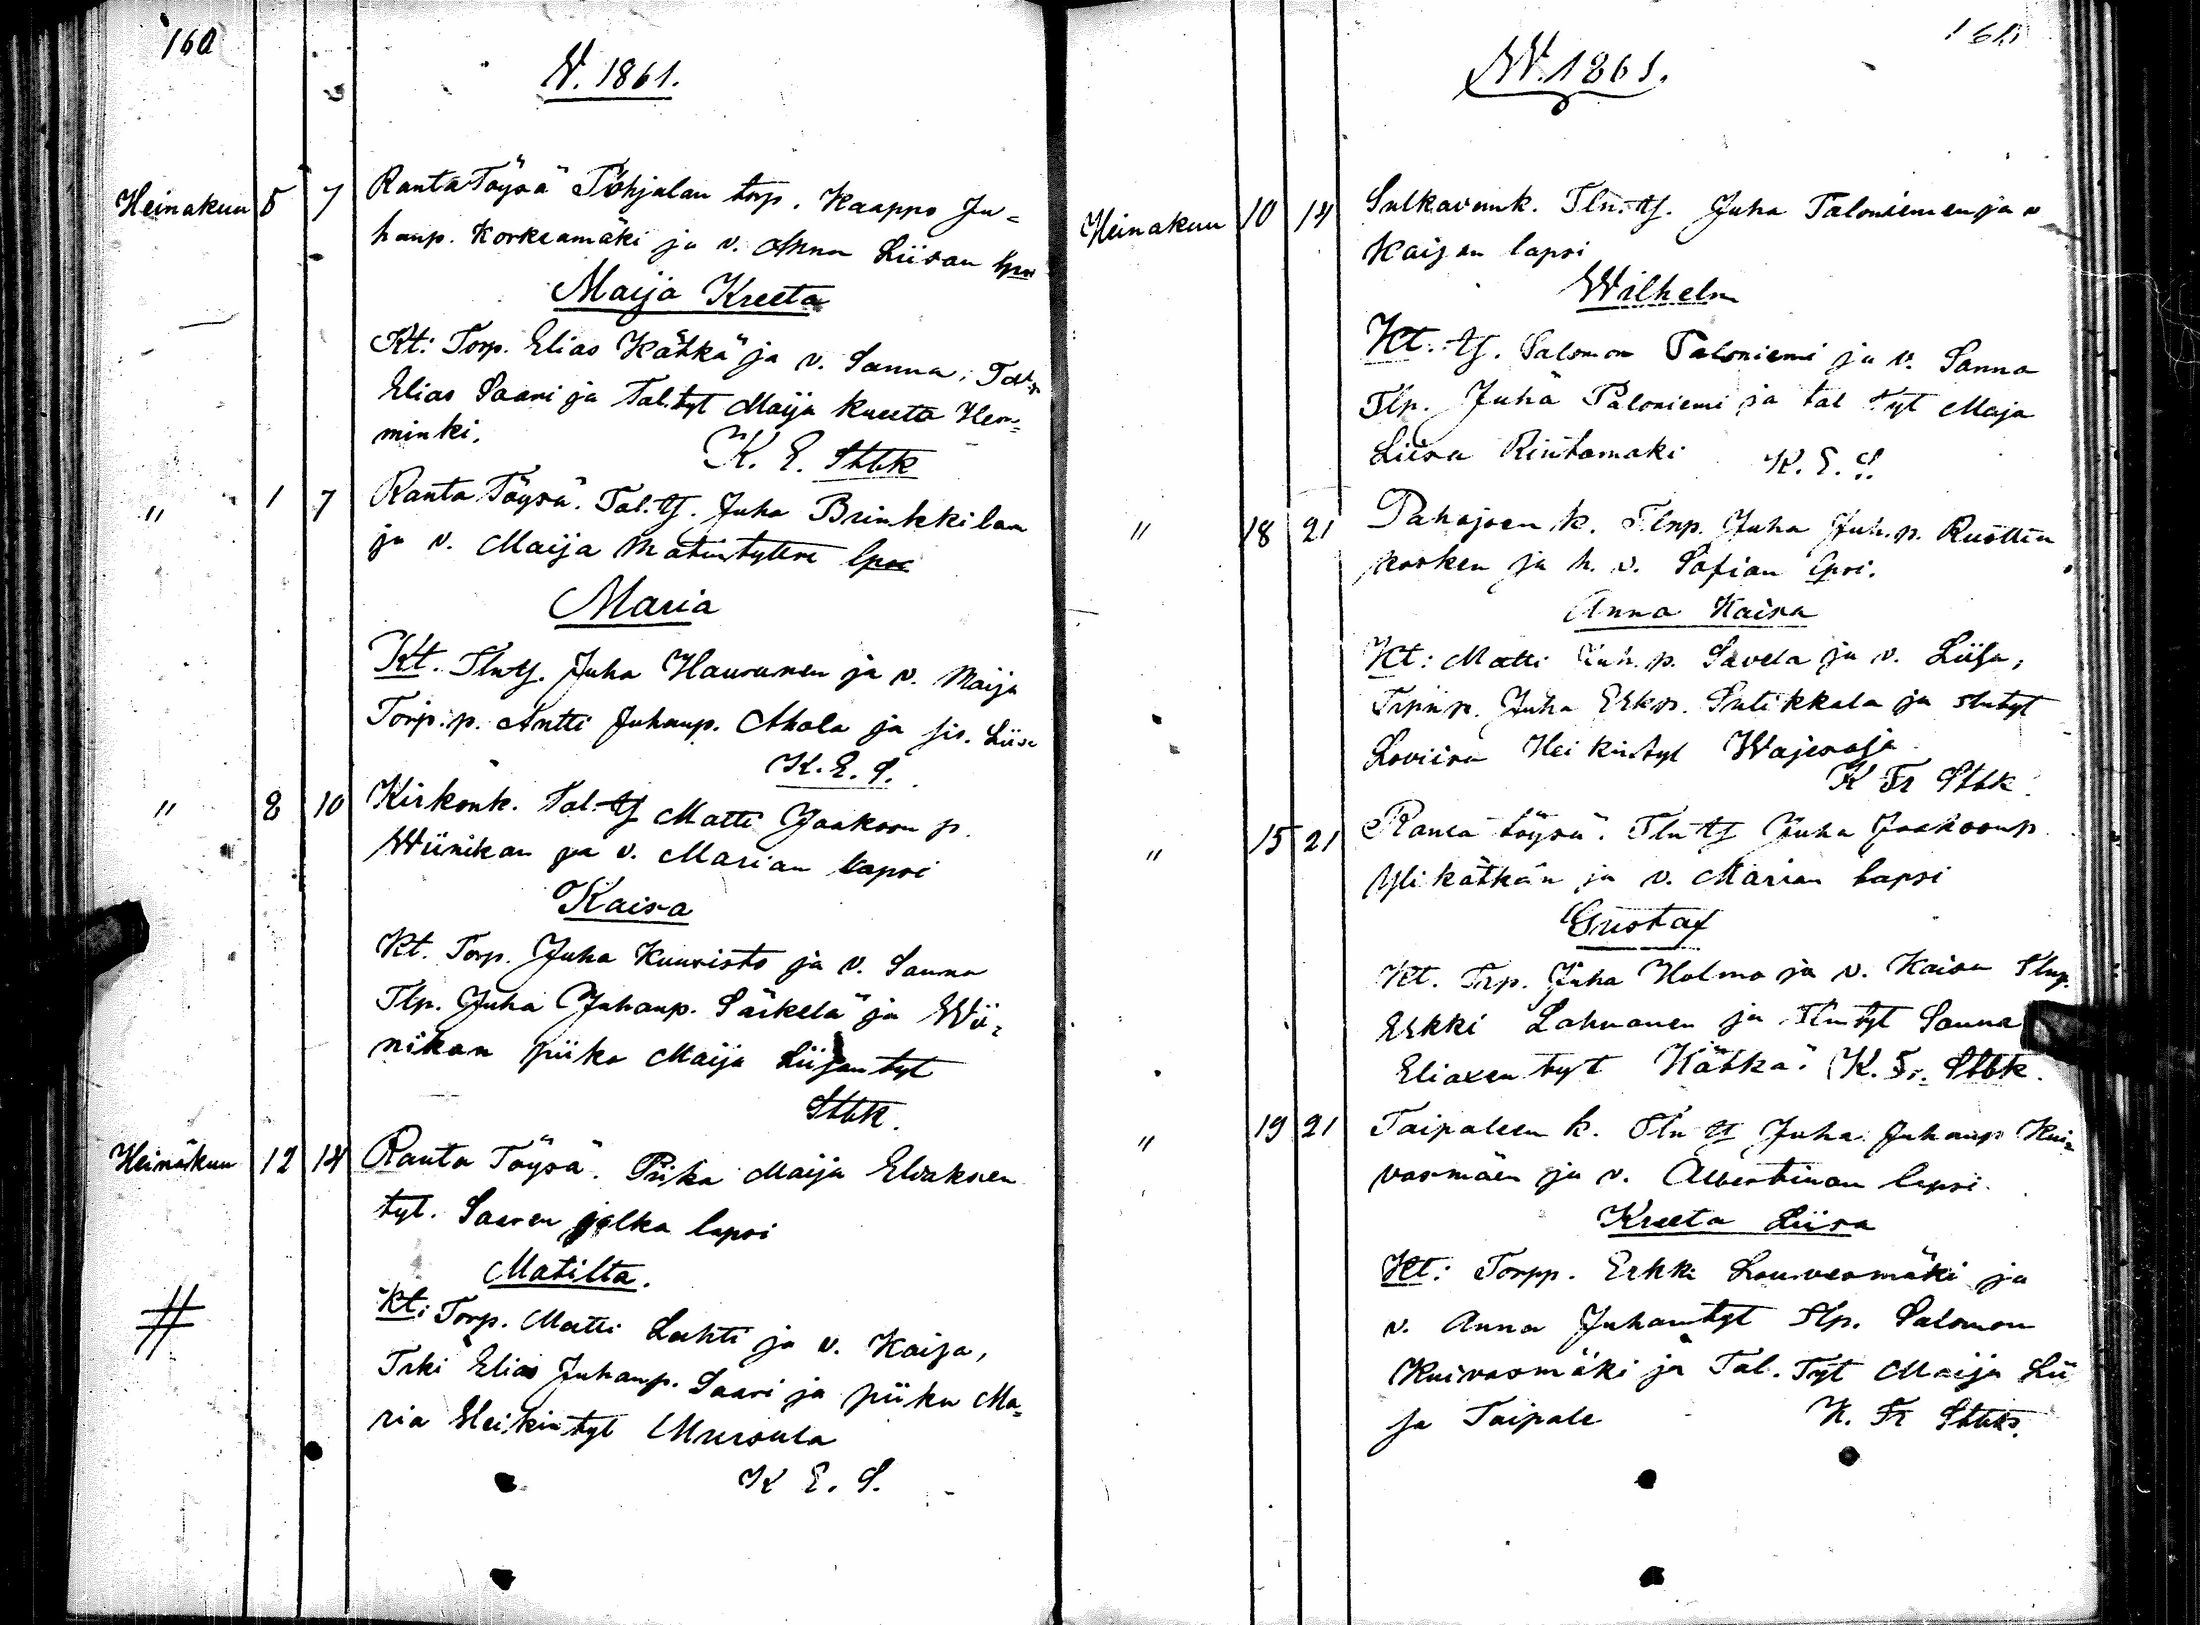 160
W. 1861.
Heinakuu 5 7 Ranta Töysä Töhjalan torp. Kaappo Ju=
hanp. Korkeamäki ja v. Anna Liisan lpsi
Maija Kreeta
Kt: Torp. Elias Kätkä ja v. Sanna,
Elias Saari ja Tal.tyt Maija Kreeta Hem=
minki.
K. E. Stbk
" 1 7 Ranta Töysä. Tal. tj. Juha Brinkkilan
ja v. Maija Matintyttre lpsi
Maria
Kt. Tln tj. Juha Haurunen ja v. Maija
Torp. p. Antti Juhanp. Ahola ja sis. Liisa
K. E. S.
" 8 10 Kirkonk. Tal. tj Matti Jaakson p.
Wiinikan ja v. Marian lapsi
Kaisa
Kt. Torp. Juha Kuuristo ja v. Sanna
Tlp. Juha Juhanp. Särkelä ja Wii=
nikan piika Maija Liisantyt
Stbk.
Heinäkuu 12 14 Ranta Töysä. Piika Maija Eliaksen
tyt. Saaren jalka lapsi
Matilta.
# Kt: Torp. Matti Lahti ja v. Kaisa,
Trki Elias Juhanp. Saari ja piika Ma=
ria Heikintyt Mursula
K E. S.
161
W. 1861.
Heinakuu 10 14 Sulkavank. Tln. tj. Juha Taloniemen ja v
Kaisan lapsi
Wilhelm
Kt. tj. Salomon Paloniemi ja v. Sanna
Tlp. Juha Paloniemi ja tal tyt Maja
Liisa Rintamaki K. E. S.
" 18 21 Pahajoen k. Tlnp. Juha Juh. p. Ruottin
kosken ja h. v. Sofian lpsi.
Anna Kaisa
Kt: Matti Juh. p. Savela ja v. Liisa,
Trpin p. Juha Erkp. Sulikkala ja tlntyt
Loviisa Heikintyt Wajesoja
K Fr Stbk.
" 15 21 Ranta töysä. Tln tj Juha Jaaksonp
Ylikätkän ja v. Marian lapsi
Gustaf
Kt. Trp. Juha Holma ja v. Kaisa Tlnp.
Erkki Lahnanen ja Tlntyt Sanna
Eliaxen tyt Kätkä. K. Fr. Stbk.
" 19 21 Taipaleen k. Tln tj Juha Juhanp Kui=
vasmäen ja v. Albertinan lapsi.
Kreeta Liisa
Kt: Torpp. Erkki Louvesmäki ja
v. Anna Juhantyt Tlp. Salomon
Kuivasmäki ja Tal. Tyt Maija Lii
sa Taipale K. Fr Stbk.